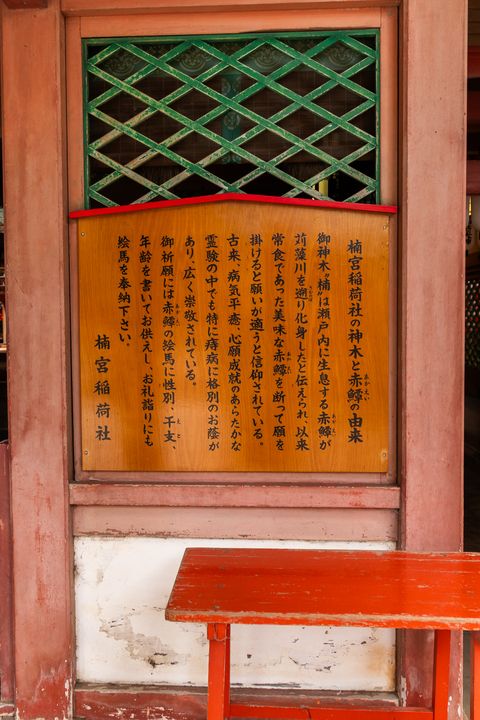 楠宮稲荷社の神木と赤鱏の由来
あかえい
御神木〝楠〟は瀬戸内に生息する赤鱏が
苅藻川を遡り化身したと伝えられ、以来
常食であった美味な赤鱏を断って願を
掛けると願いが適うと信仰されている。
古来、病気平癒、心願成就のあらたかな
霊験の中でも特に痔病に格別のお蔭が
あり、広く崇敬されている。
御祈願には赤鱏の絵馬に性別、干支、
年齢を書いてお供えし、お礼詣りにも
絵馬を奉納下さい。
楠宮稲荷社